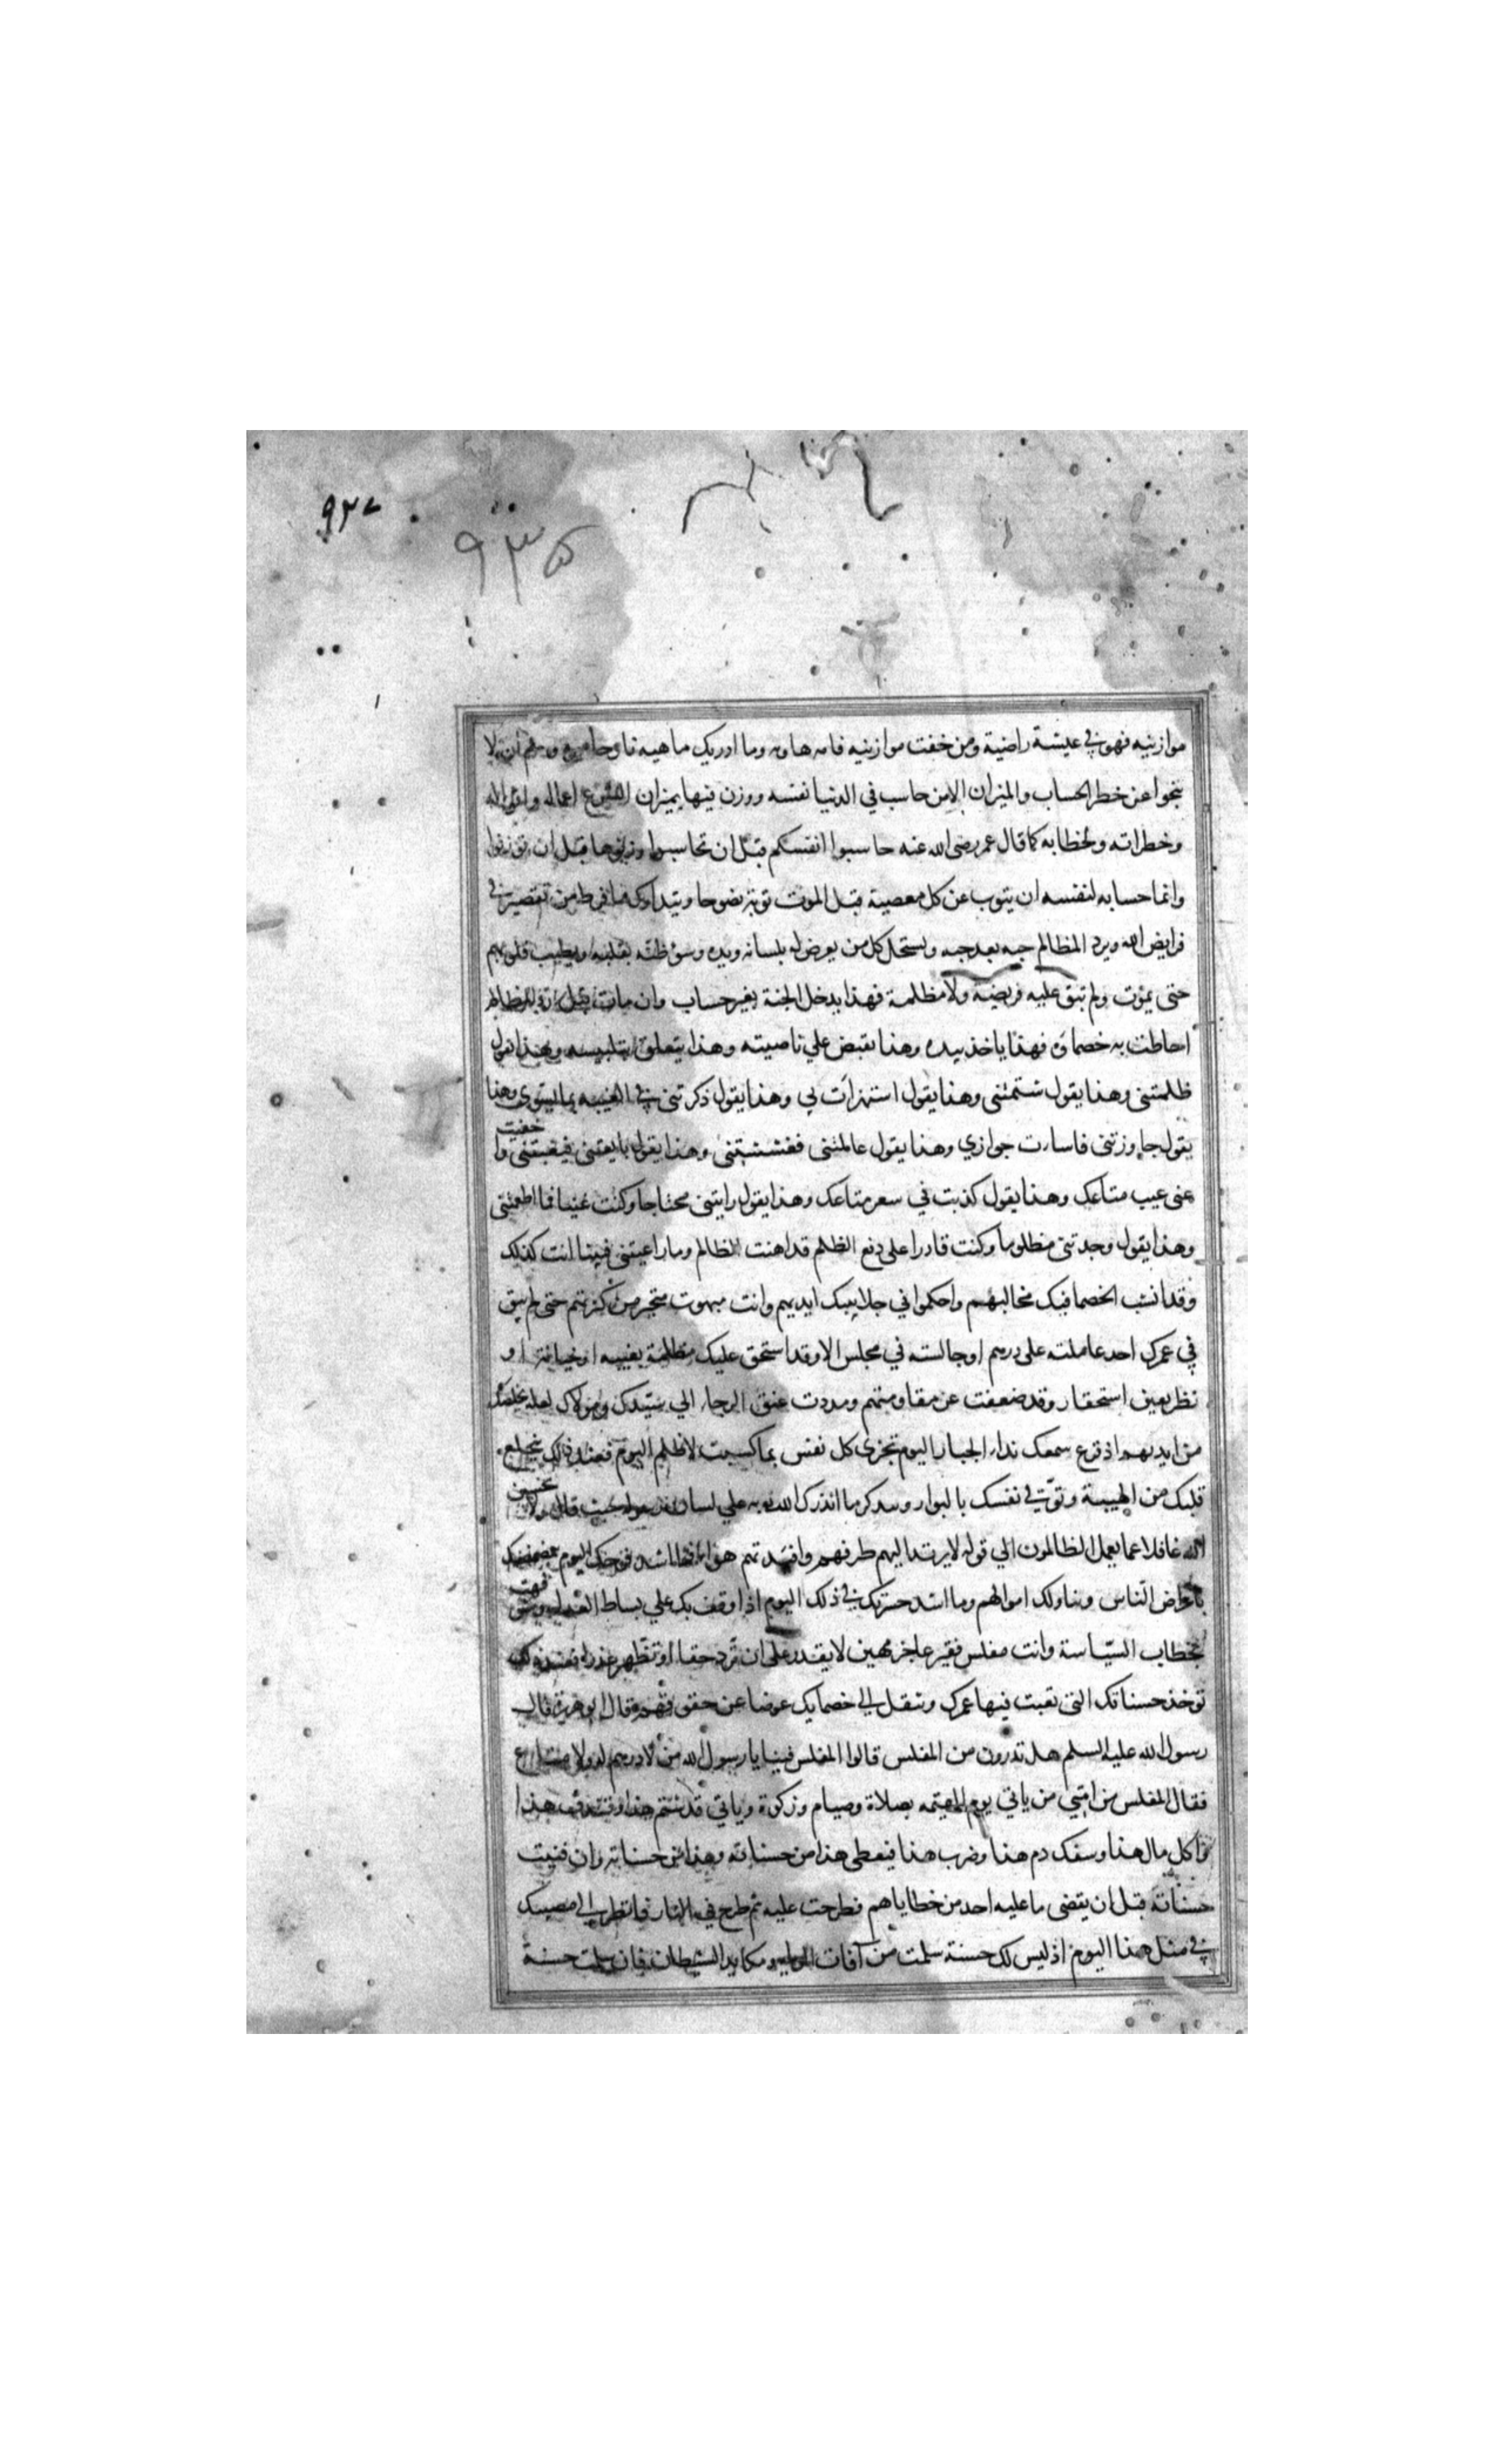 ٩٢٧
٩٣٥
موازينه فهو في عيشة راضية ومن خفت موازينه فامه هاويه وما ادريك ماهيه نار حاميه
ينجوا عن خطر الحساب والميزان الا من حاسب في الدنيا نفسه ووزن فيها بميزان الشرع اعماله واقواله
وخطراته ولحظاته كما قال عمر رضى الله عنه حاسبوا انفسكم قبل ان تحاسبوا وزنوها قبل ان توزنوا
وانما حسابه لنفسه ان يتوب عن كل معصية قبل الموت توبة نصوحا ويتدارك ما فرط من تقصير في
فرايض الله ويرد المظالم حبه بعد حبه ويستحل كل من يعرض له بلسانه ويده وسوء ظنه بقلبه ويطيب قلوبهم
حتى يموت ولم تبق عليه فريضه ولا مظلمة فهذا يدخل الجنة بغير حساب وان مات قبل رد المظالم
احاطت به خصماؤه فهذا ياخذ بيده وهذا يقبض علي ناصيته وهذا يتعلق بتلبيبه وهذا يقول
ظلمتنى وهذا يقول شتمتنى وهذا يقول استهزات بي وهذا يقول ذكرتنى في الغيبه بما يسوى وهذا
يقول جاورتنى فاسات جوازي وهذا يقول عاملتنى فغششتنى وهذا يقول بايعتنى فغبنتنى وا خفيت
عنى عيب متاعك وهذا يقول كذبت في سعر متاعك وهذا يقول رايتنى محتاجا وكنت غنيا فما اطعمتنى
وهذا يقول وجدتنى مظلوما وكنت قادرا على دفع الظلم فداهنت الظالم وما راعيتنى فبينا انت كذلك
وقد انشب الخصما فيك مخالبهم واحكموا في جلابيبك ايديهم وانت مبهوت متحير من كثرتهم حتى لم يبق
في عمرك احد عاملته على درهم او جالسته في مجلس الا وقد استحق عليك مظلمة بغيبه او خيانة او
نظر بعين استحقار وقد ضعفت عن مقاومتهم ومددت عنق الرجاء الي سيدك ومولاك لعله يخلصك
من ايديهم اذ قرع سمعك نداء الجبار اليوم تجزى كل نفس بما كسبت لا ظلم اليوم فعند ذلك ينخلع
قلبك من الهيبة وتوقن نفسك بالبوار وتتذكر ما انذرك الله به علي لسان رسوله حيث قال ولا تحسبن
الله غافلا عما يعمل الظالمون الي قوله لا يرتد اليهم طرفهم وافئدتهم هواء فما اشد فرحك اليوم بتمضمضك
باعراض الناس وتناولك اموالهم وما اشد حسرتك في ذلك اليوم اذا وقف بك علي بساط العدل وشوفهت
بخطاب السياسة وانت مفلس فقير عاجز مهين لا يقدر على ان ترد حقا او تظهر عذرا فعند ذلك
توخذ حسناتك التى تعبت فيها عمرك وتنقل الي خصمايك عوضا عن حقوقهم قال ابو هريرة قال
رسول الله عليه السلم هل تدرون من المفلس قالوا المفلس فينا يا رسول الله من لا درهم له ولا متاع
فقال المفلس من امتي من ياتي يوم القيمه بصلاة وصيام وزكوة وياتي قد شتم هذا وقذف هذا
واكل مال هذا وسفك دم هذا وضرب هذا فيعطى هذا من حسناته وهذا من حسناته وان فنيت
حسناته قبل ان يقضى ما عليه احد من خطاياهم فطرحت عليه ثم طرح في النار فانظر الي مصيبتك
في مثل هذا اليوم اذ ليس لك حسنة سلمت من آفات الريا ومكايد الشيطان فان سلمت حسنة